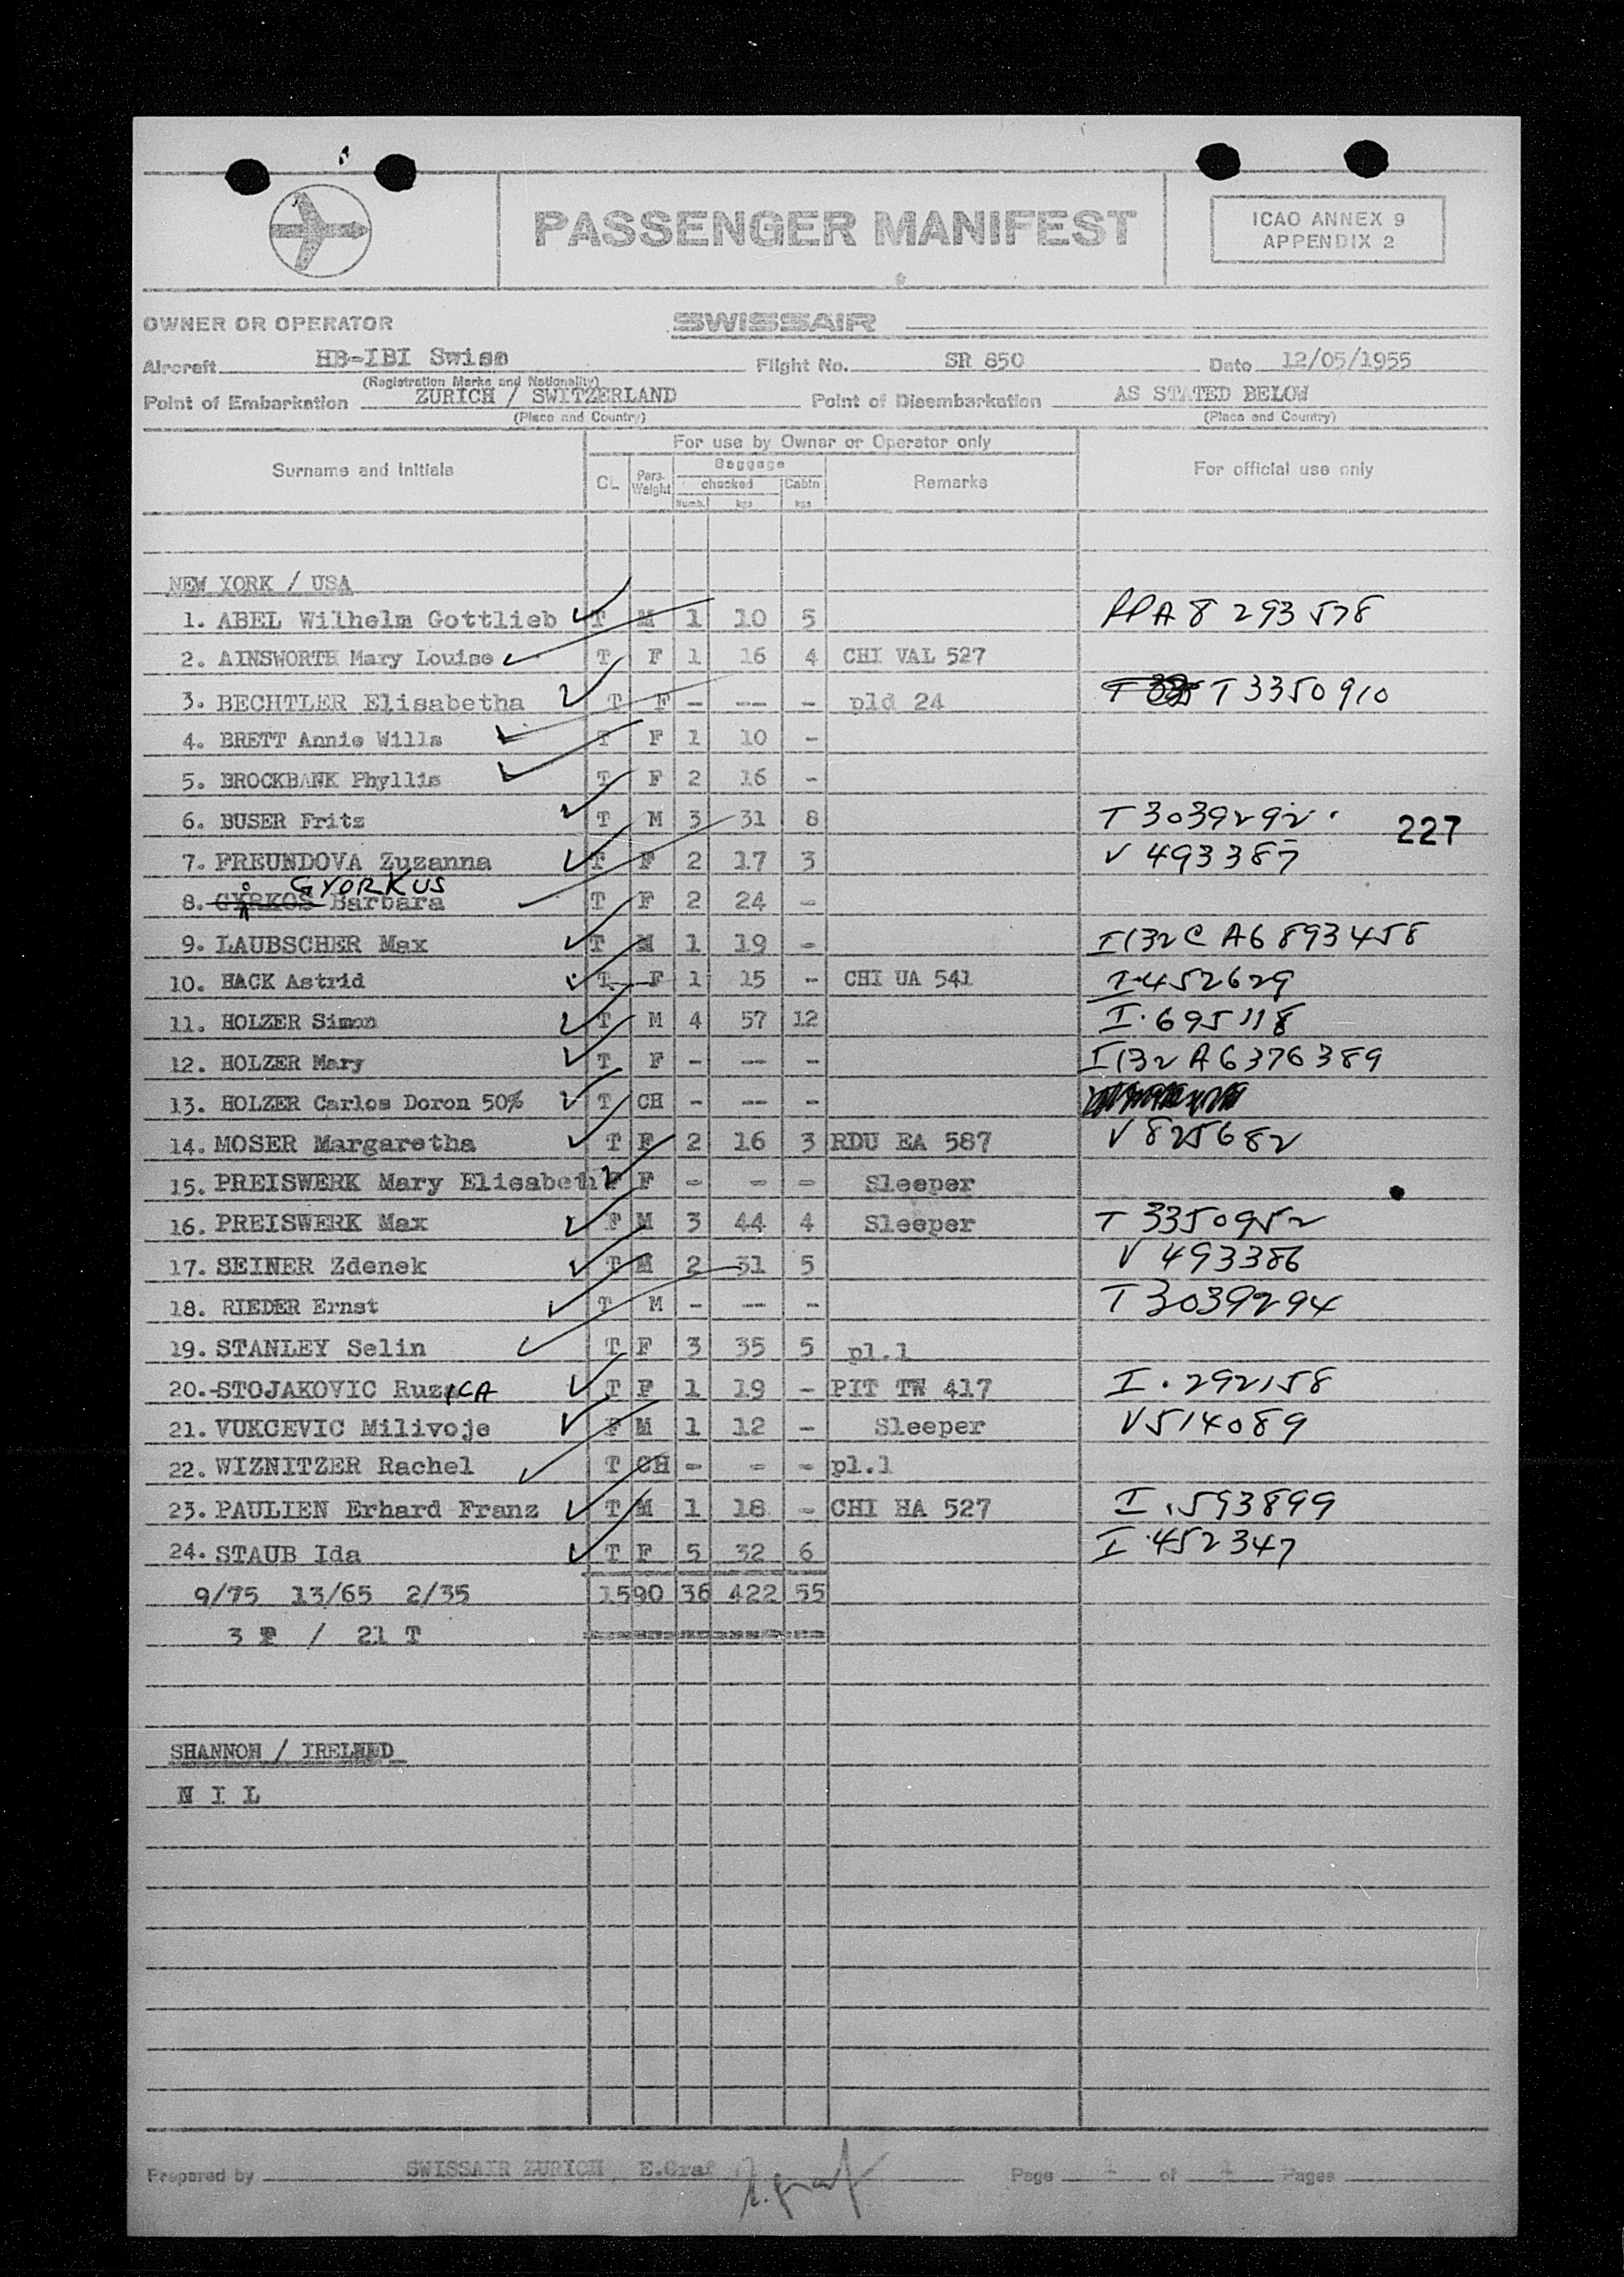 PASSENGER MANIFEST
ICAO ANNEX 9
APPENDIX 2
OWNER OR OPERATOR SWISSAIR
Aircraft HB-IBI Swiss Flight No. SR 850 Date 12/05/1955
(Registration Marks and Nationality)
Point of Embarkation ZURICH / SWITZERLAND Point of Disembarkation AS STATED BELOW
(Place and Country) (Place and Country)
For use by Owner or Operator only
Surname and Initials CL Pers. Weight Baggage checked Numb. kgs Cabin kgs Remarks For official use only
NEW YORK / USA
1. ABEL Wilhelm Gottlieb T M 1 10 5 PPA 8 293 578
2. AINSWORTH Mary Louise T F 1 16 4 CHI VAL 527
3. BECHTLER Elisabetha T F - --- - pld 24 T 3350910
4. BRETT Annie Wills T F 1 10 -
5. BROCKBANK Phyllis T F 2 16 -
6. BUSER Fritz T M 3 31 8 T 3039292
227
7. FREUNDOVA Zuzanna T F 2 17 3 V 493387
GYORKUS
8. GYRKOS Barbara T F 2 24 -
9. LAUBSCHER Max T M 1 19 - I132C A6 893458
10. HACK Astrid T F 1 15 - CHI UA 541 I-452629
11. HOLZER Simon T M 4 57 12 I.695118
12. HOLZER Mary T F - --- - I132 A6376389
13. HOLZER Carlos Doron 50% T CH - --- -
14. MOSER Margaretha T F 2 16 3 RDU EA 587 V 825682
15. PREISWERK Mary Elisabeth F F - - - Sleeper
16. PREISWERK Max F M 3 44 4 Sleeper T 3350952
17. SEINER Zdenek T M 2 31 5 V 493386
18. RIEDER Ernst T M - --- - T 3039294
19. STANLEY Selin T F 3 35 5 pl.1
20. STOJAKOVIC RuzICA T F 1 19 - PIT TW 417 I.292158
21. VUKCEVIC Milivoje F M 1 12 - Sleeper V514089
22. WIZNITZER Rachel T CH - - - pl.1
23. PAULIEN Erhard Franz T M 1 18 - CHI HA 527 I.593899
24. STAUB Ida T F 5 32 6 I.452347
9/75 13/65 2/35 1590 36 422 55
3 F / 21 T
SHANNON / IRELNND
N I L
Prepared by SWISSAIR ZURICH, E.Graf E. Graf Page 1 of 1 Pages